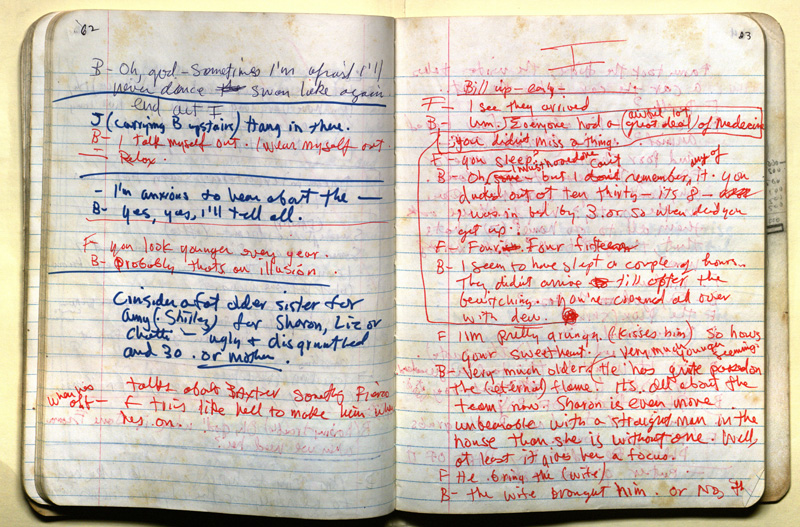 62
B- Oh, god - sometimes I'm afraid I'll
never dance swan lake again.
end act I.
J (carrying B upstairs) Hang in there.
B- I talk myself out. I wear myself out.
Relax.
- I'm anxious to hear about the -
B- yes, yes, I'll tell all.
F- you look younger every year.
B- Probably that's an illusion.
Consider a fat older sister for
Amy (Shirley) for Sharon, Liz or
- ugly & disgruntled
and 30. or mother.
talks about Baxter something Pierce
when he's off - F tries like hell to make him when
he's on.
63
I
Bill up - early -
F- I see they arrived
B- Um. Everyone had a (great deal) of medicine
awful lot
you didn't miss a thing.
F- you sleep?
B- Oh, I must have done but I can't remember any of it. You
ducked out at ten thirty - it's 8 -
I was in bed by 3 or so when did you
get up.
F- Four. Four fifteen
B- I seem to have slept a couple of hours.
They didn't arrive till after the
bewitching. You're covered all over
with dew.
F I'm pretty grungy. (Kisses him) So how's
your sweetheart.
B- Very much older. He has quite passed on
very much younger seeming.
the (eternal) flame. It's all about the
team now. Sharon is even more
unbearable with a straight man in the
house than she is without one. Well,
at least it gives her a focus.
F He bring the (wife)
B- the wife brought him. or No, th